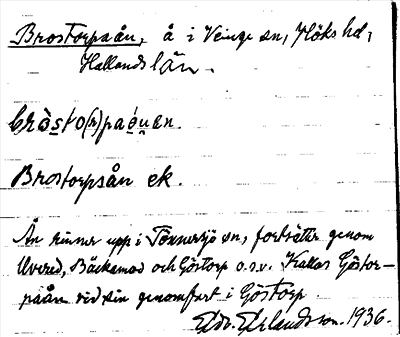 Brostorpsån, å i Veinge sn, Höks hd,
Hallands län.
bròsto(r)paǫ́ṇæn.
Brostorpsån ek.
Ån rinner upp i Tönnersjö sn, fortsätter genom
Uvered, Bäckamad och Göstorp o.s.v. Kallas Göstor-
psån vid sin genomfart i Göstorp.
Edv. Erlandsson. 1936.